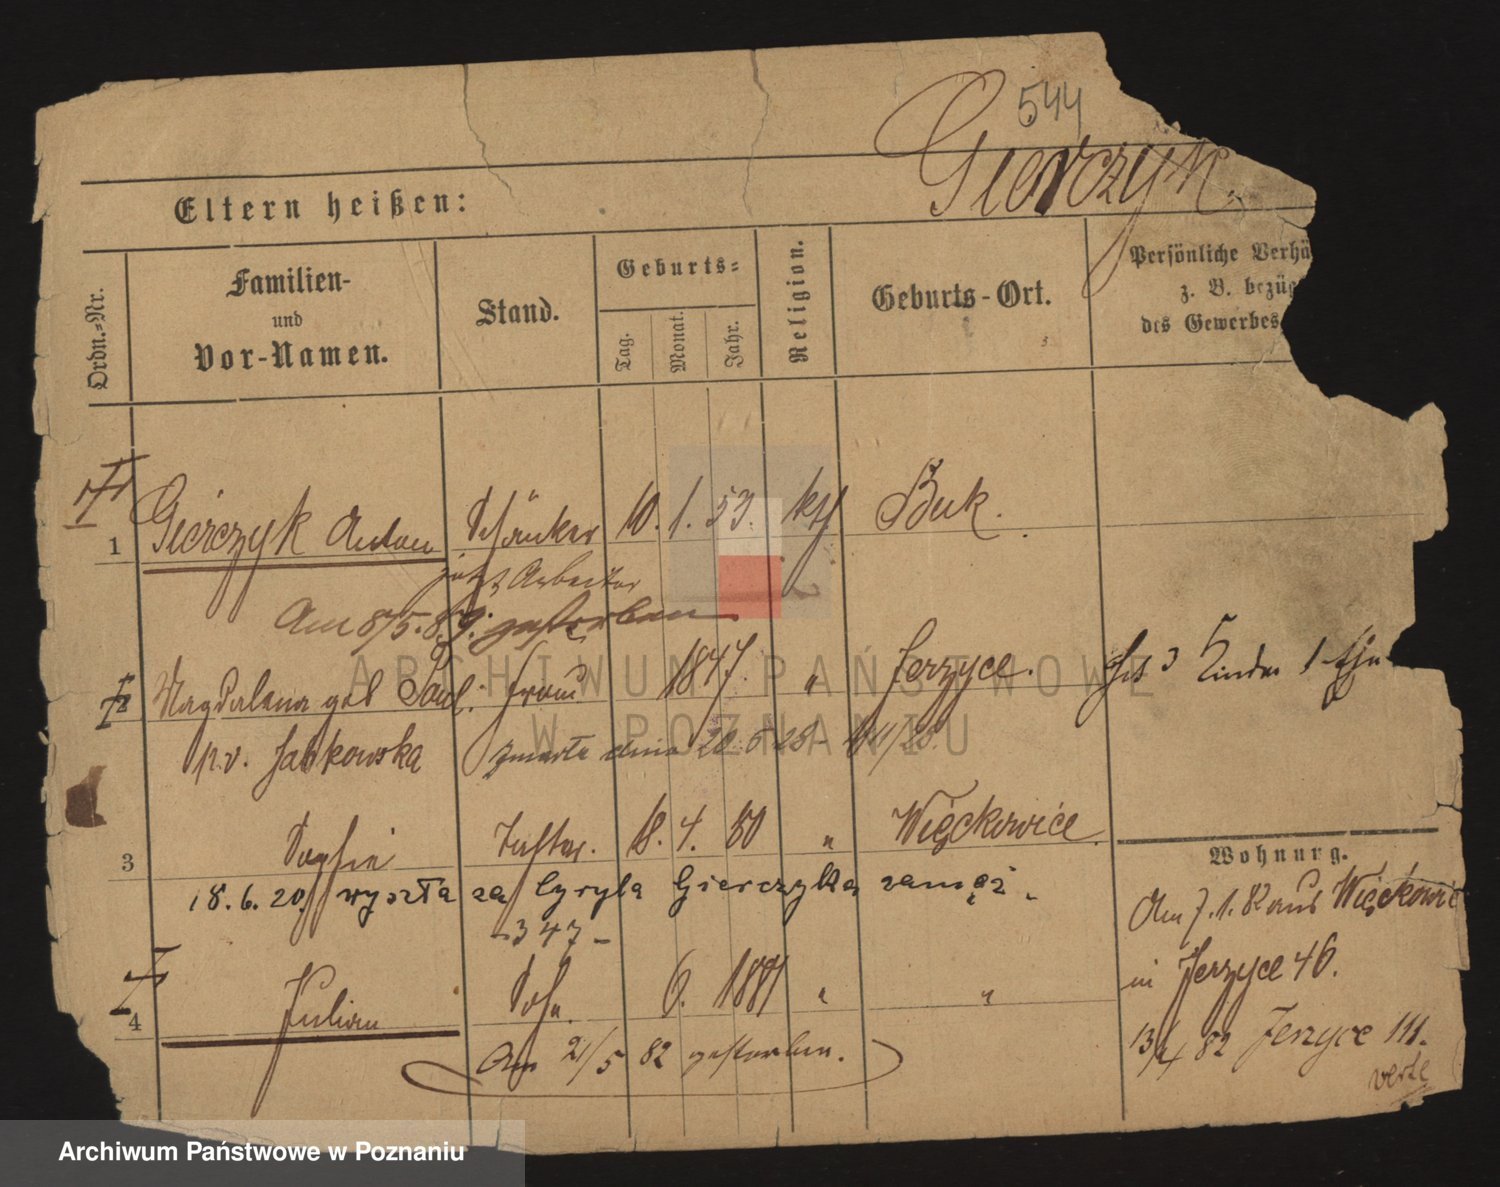 544
Gierczyk.
Eltern heißen:
Ordn.-Nr.
Familien-
und
Vor-Namen.
Stand.
Geburts-
Tag.
Monat.
Jahr.
Religion.
Geburts-Ort.
Persönliche Verhä
z. B. bezüg
des Gewerbes
1 Gierczyk Anton Schänker 10. 1. 53. kth Buk.
jetzt Arbeiter
Am 8/5. 89. gestorben
2 Magdalena geb Paul. Frau 1847. " Jerzyce. hat 3 Kinder 1
p.v. Jabkowska zmarła dnia 20.5 25
3 Sophie Tochter. 18. 4. 80 " Więckowice.
18. 6. 20. wyszła za Cyryla Gierczyka zamąż.
- 347 -
4 Julian Sohn. 6. 1881 " "
Am 21/5 82 gestorben.
Wohnung.
Am 7. 1. 82 aus Więckowic
in Jerzyce 46.
13/4 82 Jerzyce 111.
verte
ARCHIWUM PAŃSTWOWE
W POZNANIU
Archiwum Państwowe w Poznaniu